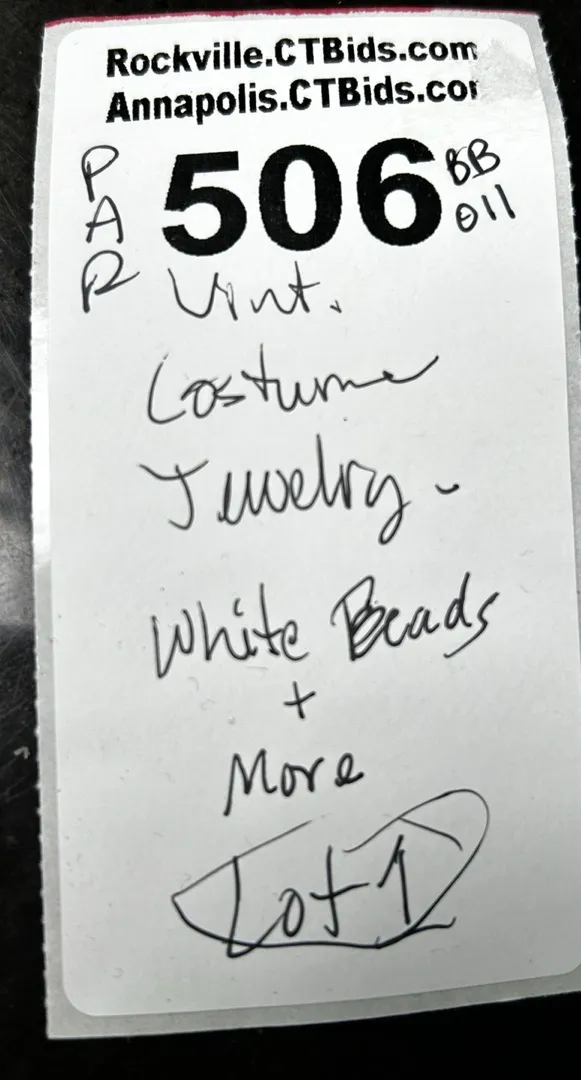 Rockville.CTBids.com
Annapolis.CTBids.cor
PAR
506
BB
011
Vint.
Costume
Jewelry -
White Beads
+
More
Lot 1